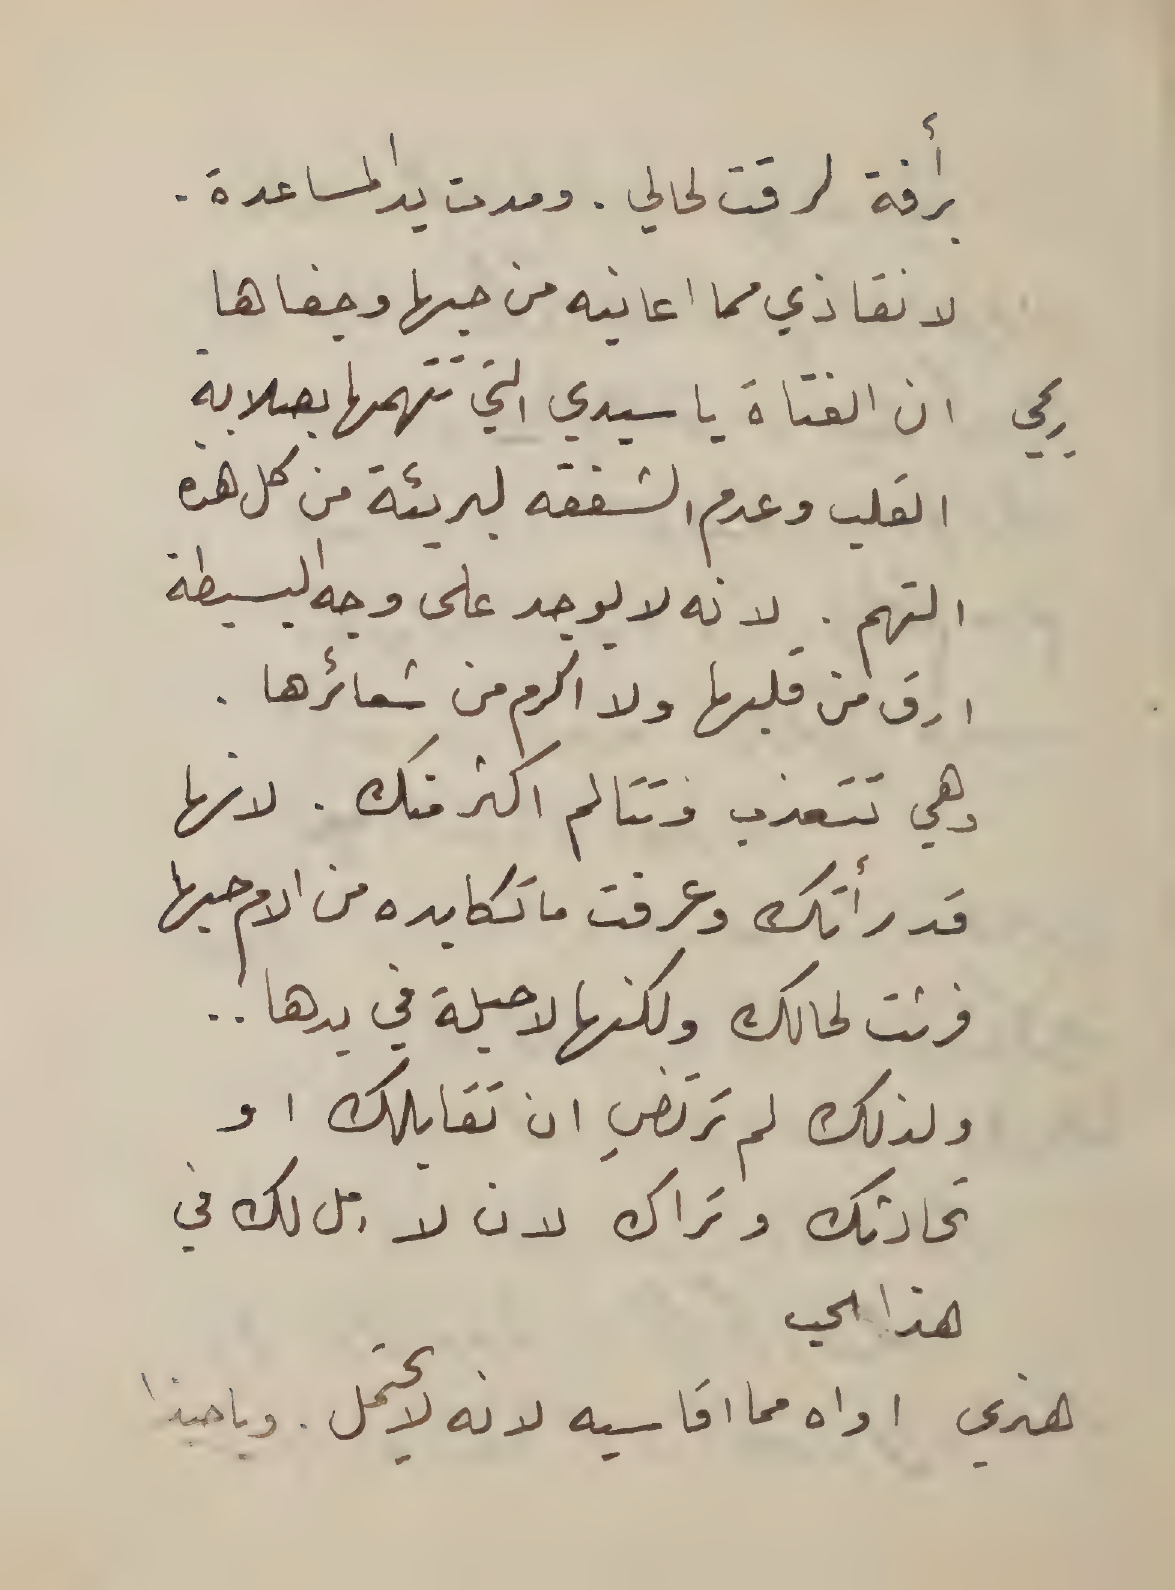 برأفة لرقت لحالي . ومدت يد المساعدة .
لانقاذي مما اعانيه من حبها وجفاها
ريمي ان الفتاة يا سيدي التي تتهمها بصلابة
القلب وعدم الشفقه لبريئة من كل هذه
التهم . لانه لا يوجد على وجه البسيطة
ارق من قلبها ولا اكرم من شعائرها .
وهي تتعذب وتتالم اكثر منك . لانها
قد رأتك وعرفت ما تكابده من الام حبها
فرثت لحالك ولكنها لا حيلة في يدها ..
ولذلك لم ترتضِ ان تقابلك او
تحادثك وتراك لان لا امل لك في
هذا الحب
هنري اواه مما اقاسيه لانه لا يحتمل . ويا حبذا